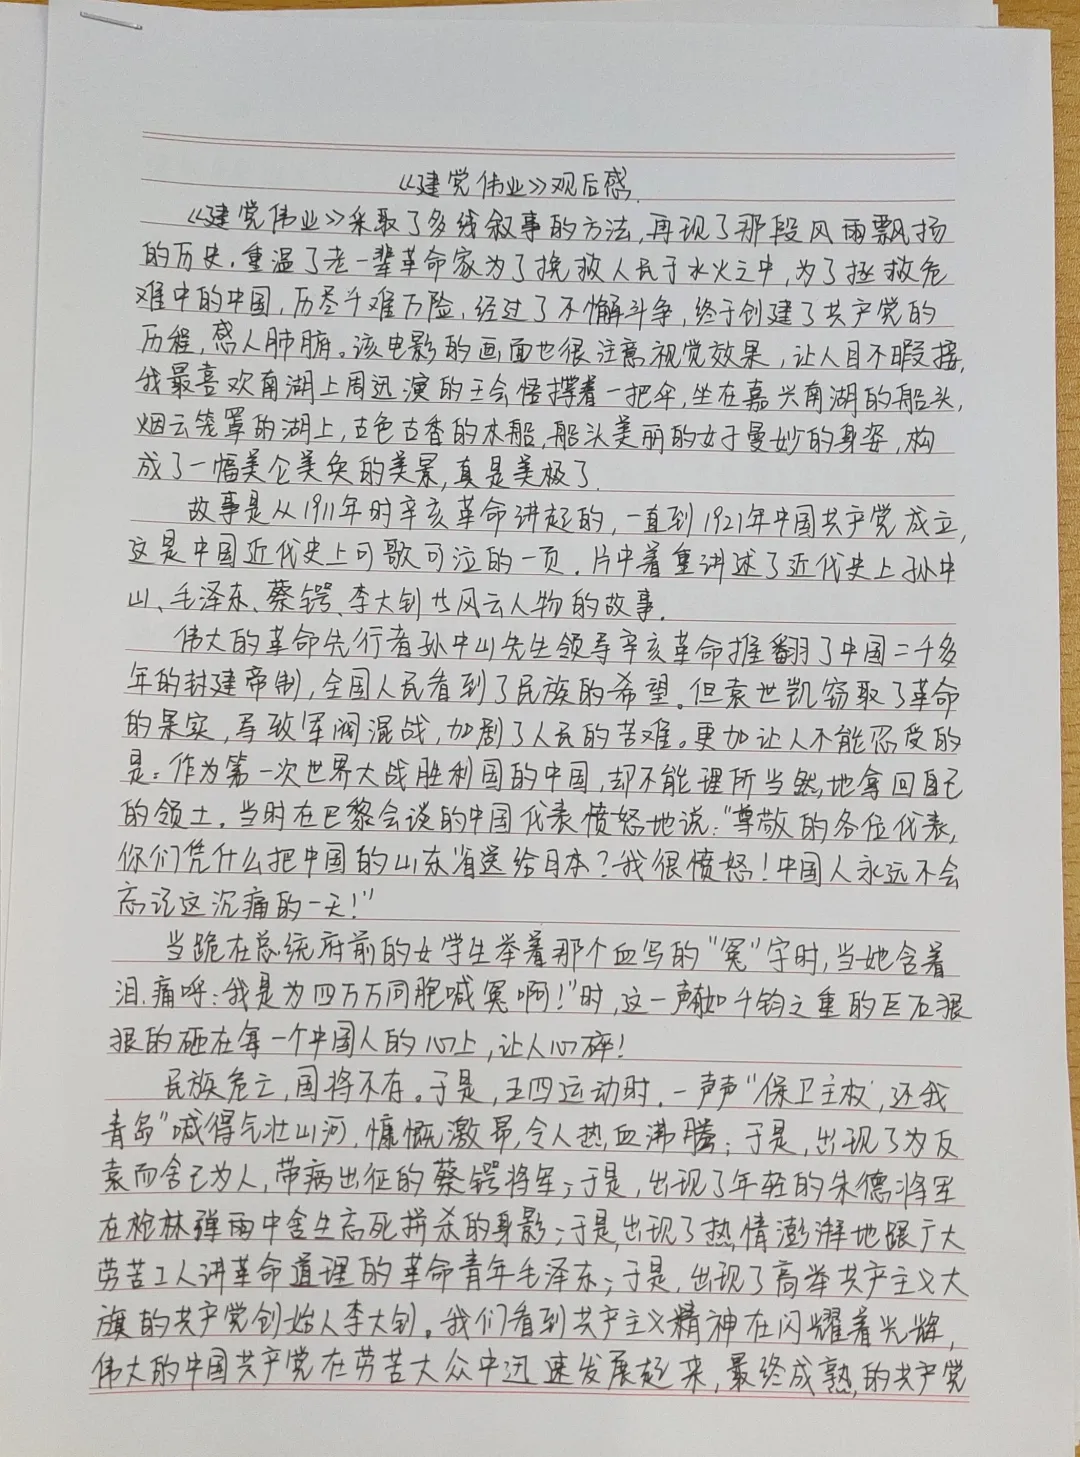 《建党伟业》观后感
《建党伟业》采取了多线叙事的方法,再现了那段风雨飘扬
的历史.重温了老一辈革命家为了挽救人民于水火之中,为了拯救危
难中的中国,历尽千难万险,经过了不懈斗争,终于创建了共产党的
历程,感人肺腑。该电影的画面也很注意视觉效果,让人目不暇接,
我最喜欢南湖上周迅演的王会悟撑着一把伞,坐在嘉兴南湖的船头,
烟云笼罩的湖上,古色古香的木船,船头美丽的女子曼妙的身姿,构
成了一幅美仑美奂的美景,真是美极了.
故事是从1911年时辛亥革命讲起的,一直到1921年中国共产党成立,
这是中国近代史上可歌可泣的一页.片中着重讲述了近代史上孙中
山、毛泽东、蔡锷、李大钊等风云人物的故事.
伟大的革命先行者孙中山先生领导辛亥革命推翻了中国二千多
年的封建帝制,全国人民看到了民族的希望.但袁世凯窃取了革命
的果实,导致军阀混战,加剧了人民的苦难。更加让人不能忍受的
是:作为第一次世界大战胜利国的中国,却不能理所当然地拿回自己
的领土.当时在巴黎会谈的中国代表愤怒地说:"尊敬的各位代表,
你们凭什么把中国的山东省送给日本?我很愤怒!中国人永远不会
忘记这沉痛的一天!"
当跪在总统府前的女学生举着那个血写的"冤"字时,当她含着
泪.痛呼:我是为四万万同胞喊冤啊!"时,这一声有如千钧之重的巨石狠
狠的砸在每一个中国人的心上,让人心碎!
民族危亡,国将不存.于是,五四运动时.一声声"保卫主权,还我
青岛"喊得气壮山河,慷慨激昂,令人热血沸腾;于是,出现了为反
袁而舍己为人,带病出征的蔡锷将军;于是,出现了年轻的朱德将军
在枪林弹雨中舍生忘死拼杀的身影;于是,出现了热情澎湃地跟广大
劳苦工人讲革命道理的革命青年毛泽东;于是,出现了高举共产主义大
旗的共产党创始人李大钊。我们看到共产主义精神在闪耀着光辉,
伟大的中国共产党在劳苦大众中迅速发展起来,最终成熟的共产党